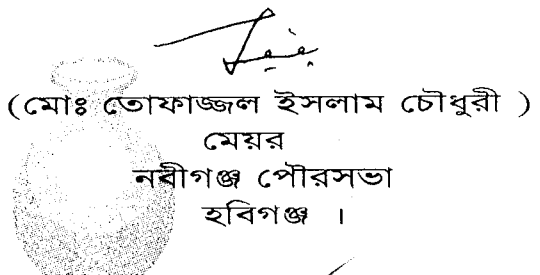 (মোঃ তোফাজ্জল ইসলাম চৌধুরী )
মেয়র
নবীগঞ্জ পৌরসভা
হবিগঞ্জ ।